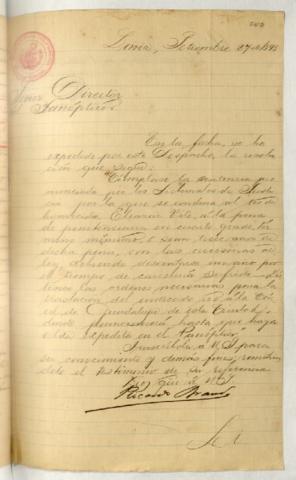 Lima, Setiembre 27 de 189
Señor
Director
Panóptico
En la fecha, se ha
expedido por este Despacho, la resolu
ción que sigue:
"Cúmplase la sentencia pro
nunciada por los Tribunales de Justi
cia por la que se condena al reo de
homicidio Eleuterio a la pena
de penitenciaria en cuarto grado, tér
mino máximo, o sean
dicha pena, con las accesorias
debiendo descontarse un año por
el tiempo de carcelería sufrida
las órdenes necesarias para la
traslación del indicado reo á la Cár
cel de Guadalupe de esta Capital,
donde permanecerá hasta que haya
celda expedita en el Panóptico"
Trascríbola á US para
su conocimiento y demás fines, remitién
dole el testimonio de su referencia
Dios gue á US
Ricardo